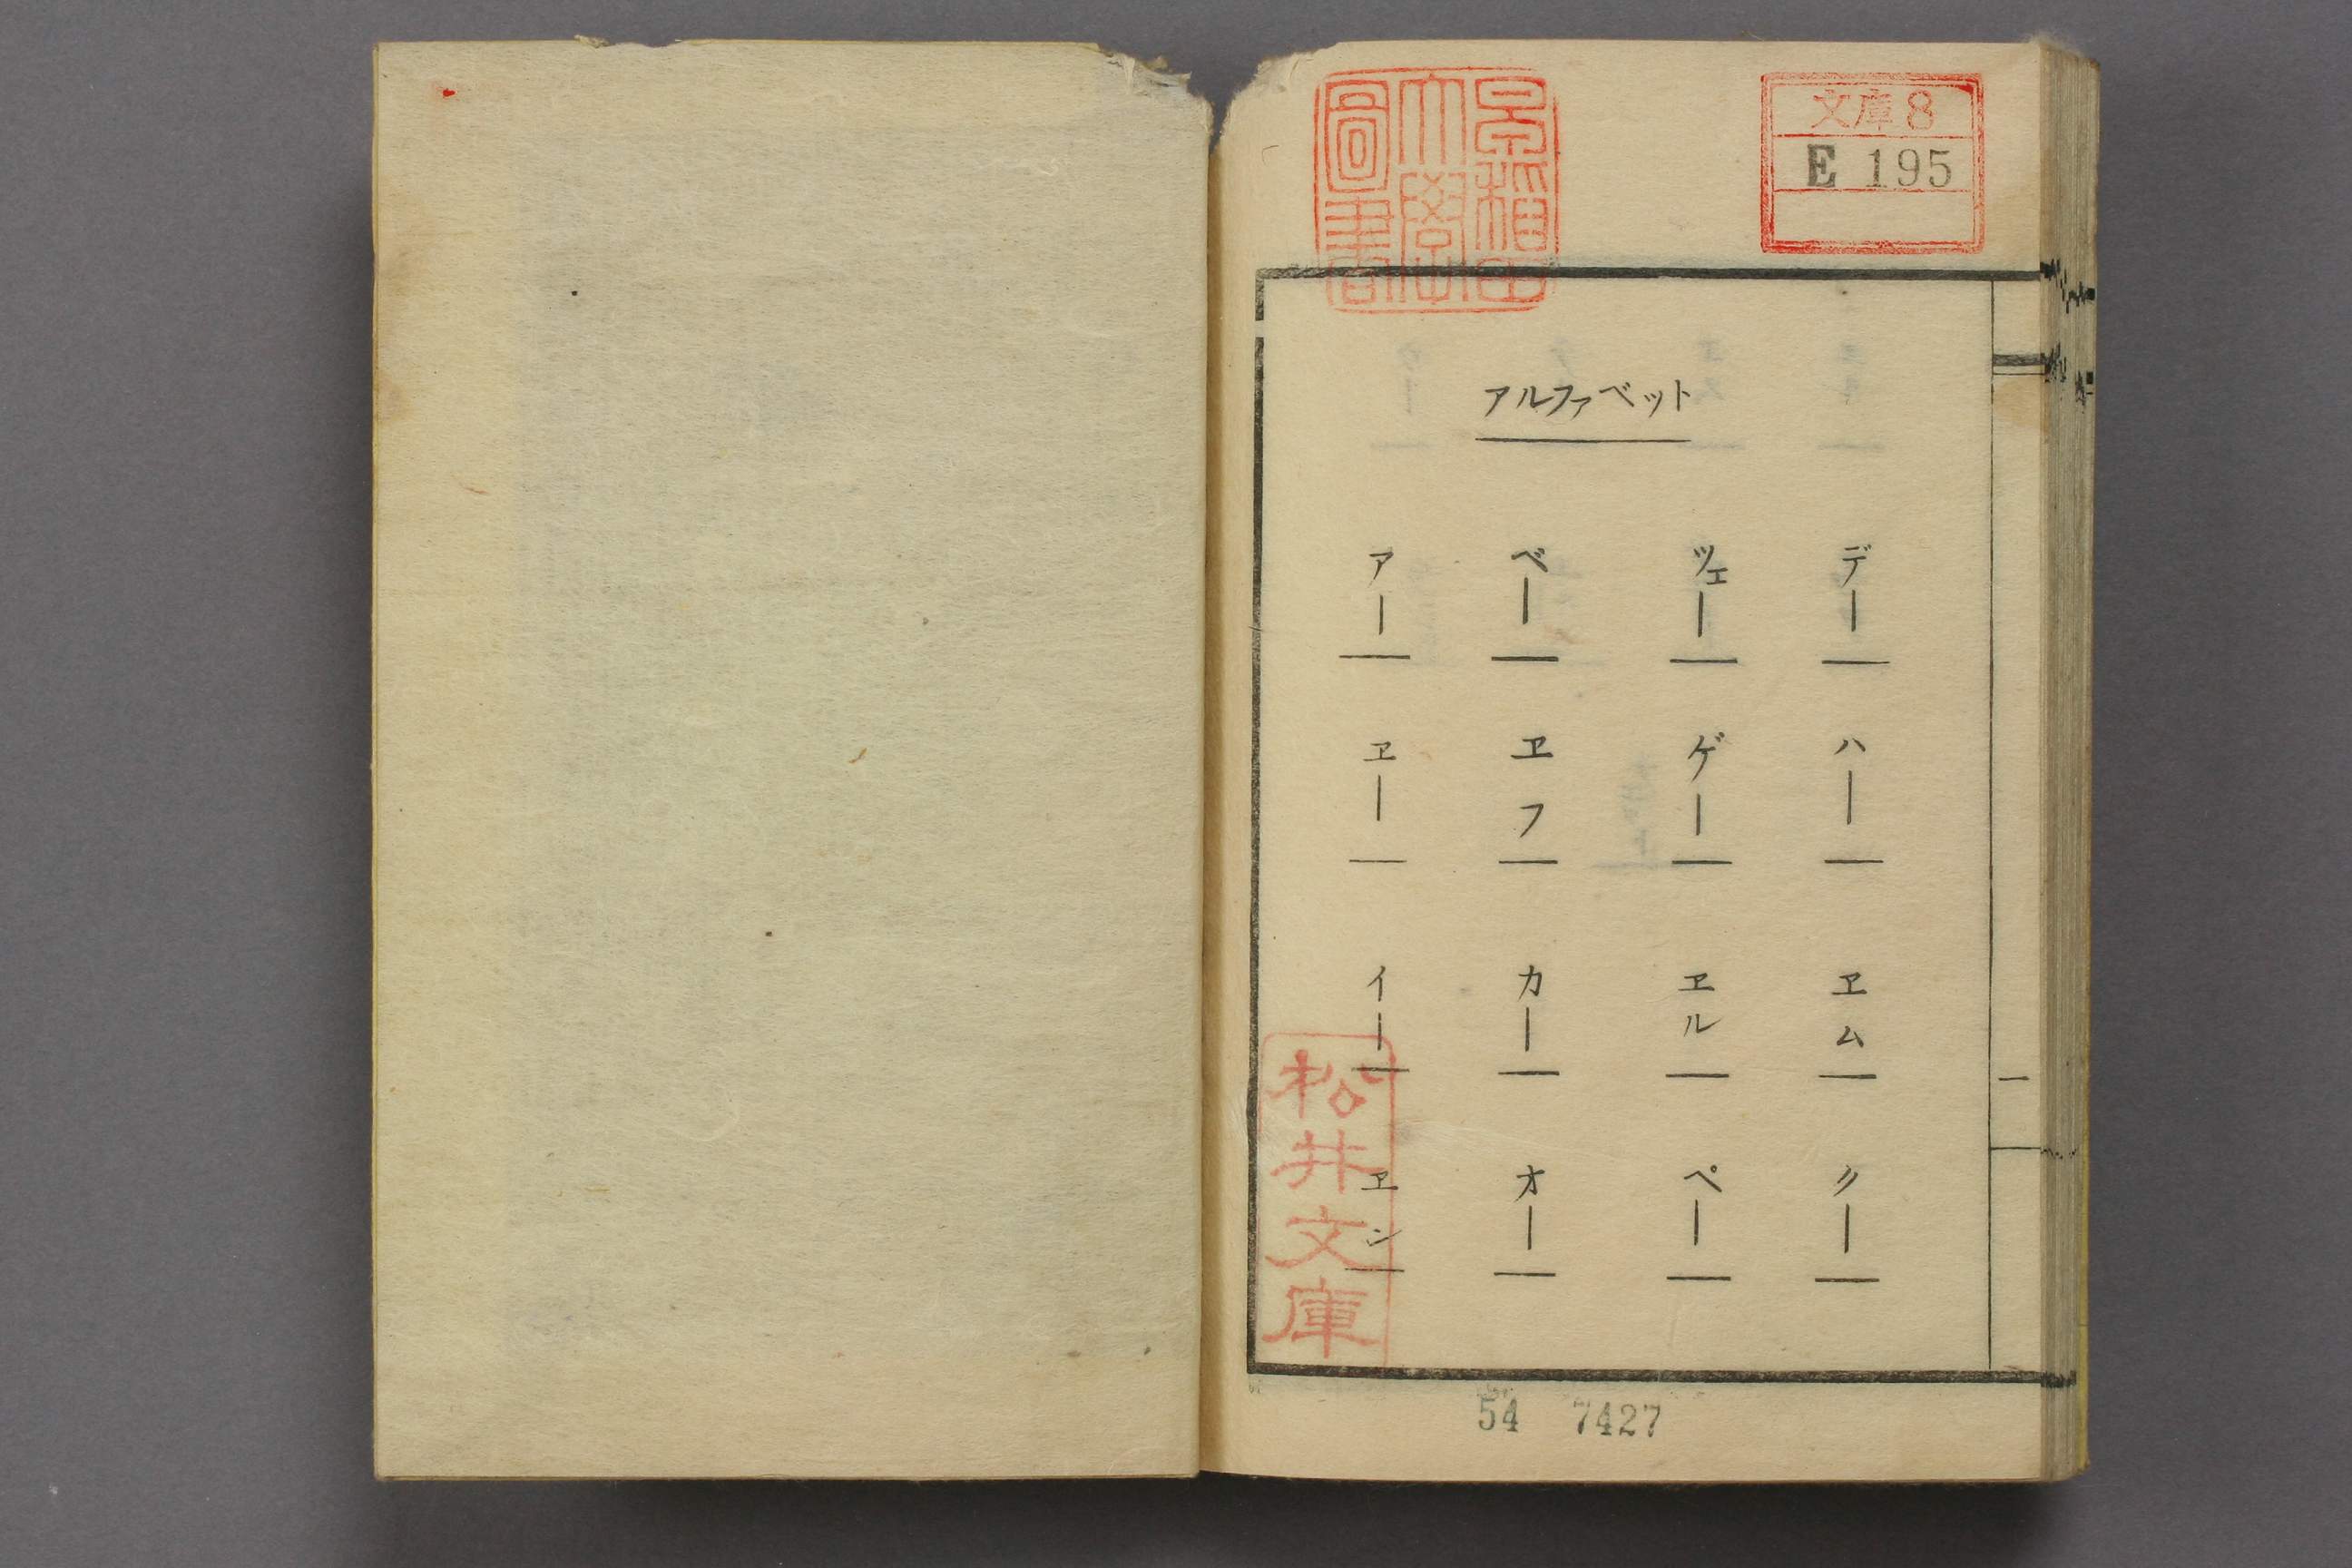 早稻田
大學
圖書
文庫8
E 195
アルファベット
アー ベー ツェー デー
ヱー ヱフ ゲー ハー
イー カー ヱル ヱム
ヱン オー ペー クー
一
松井文庫
54 7427